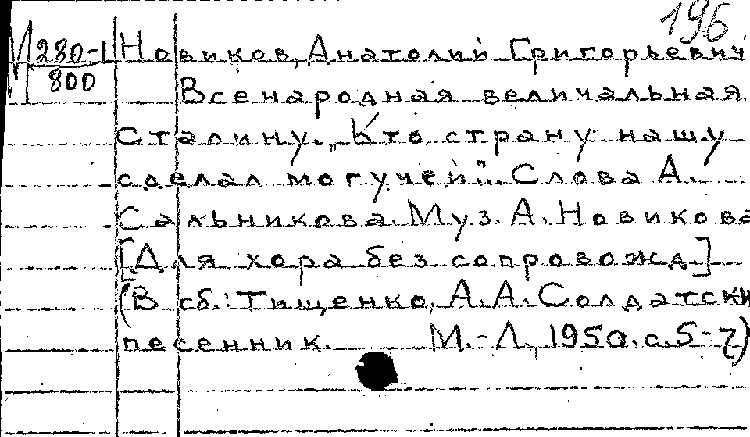 196
М 280-1 Новиков, Анатолий Григорьевич
800
Всенародная величальная
Сталину. „Кто страну нашу
сделал могучей". Слова А.
Сальникова. Муз. А. Новикова
[Для хора без сопровожд]
(В сб.: Тищенко, А.А. Солдатски
песенник. М.-Л., 1950. с. 5-7)